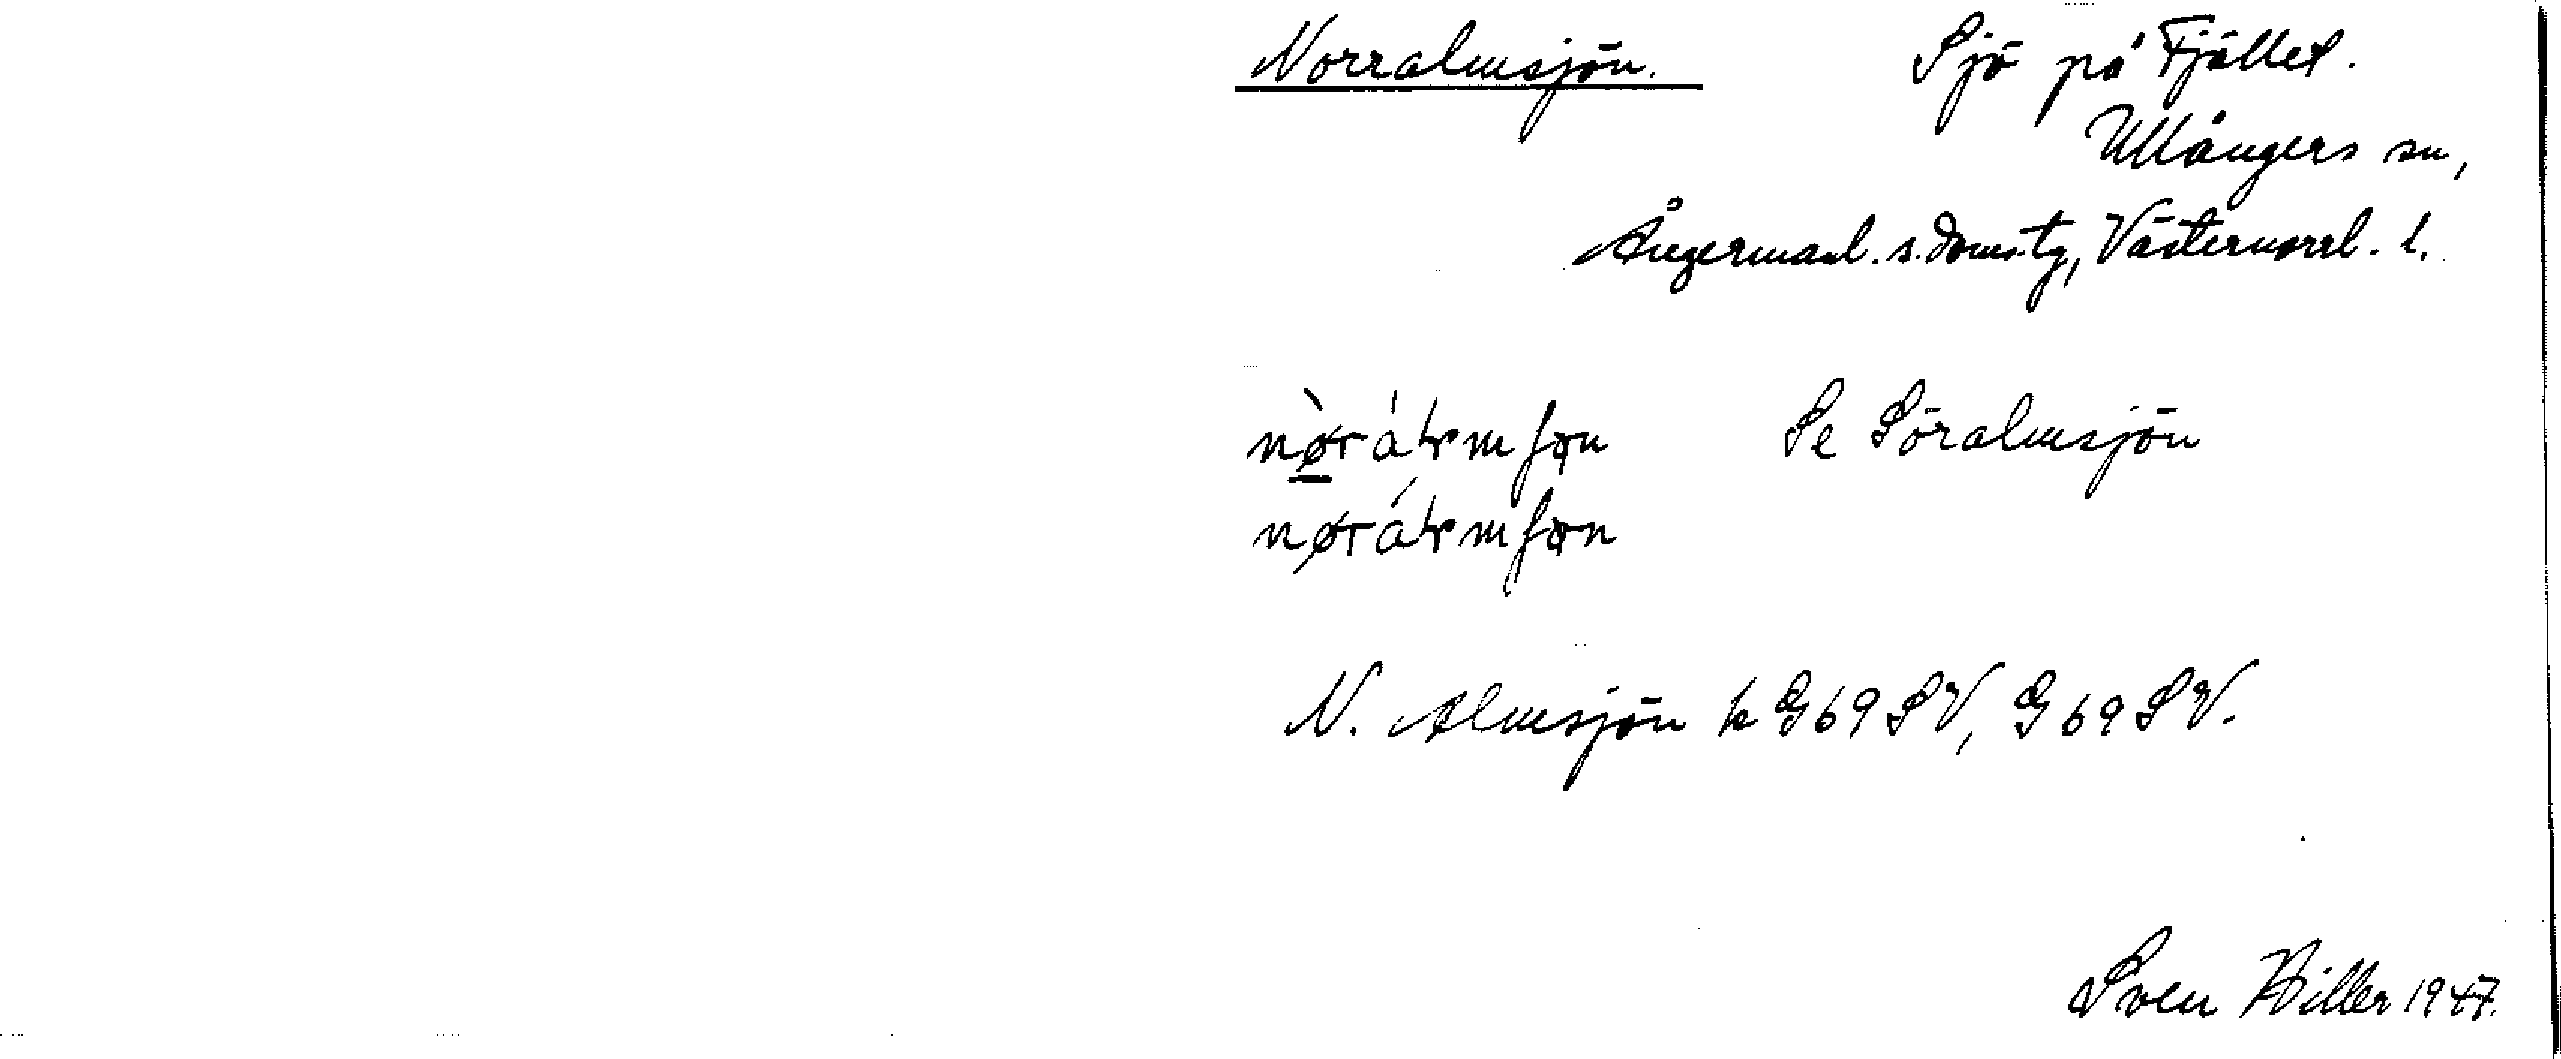 Norralmsjön. Sjö på Fjället.
Ullångers sn,
Ångermanl. s. doms.tg, Västernorrl. l.
Se Söralmsjön
N. Almsjön k G69SV, G69SV.
Sven Biller 1947.